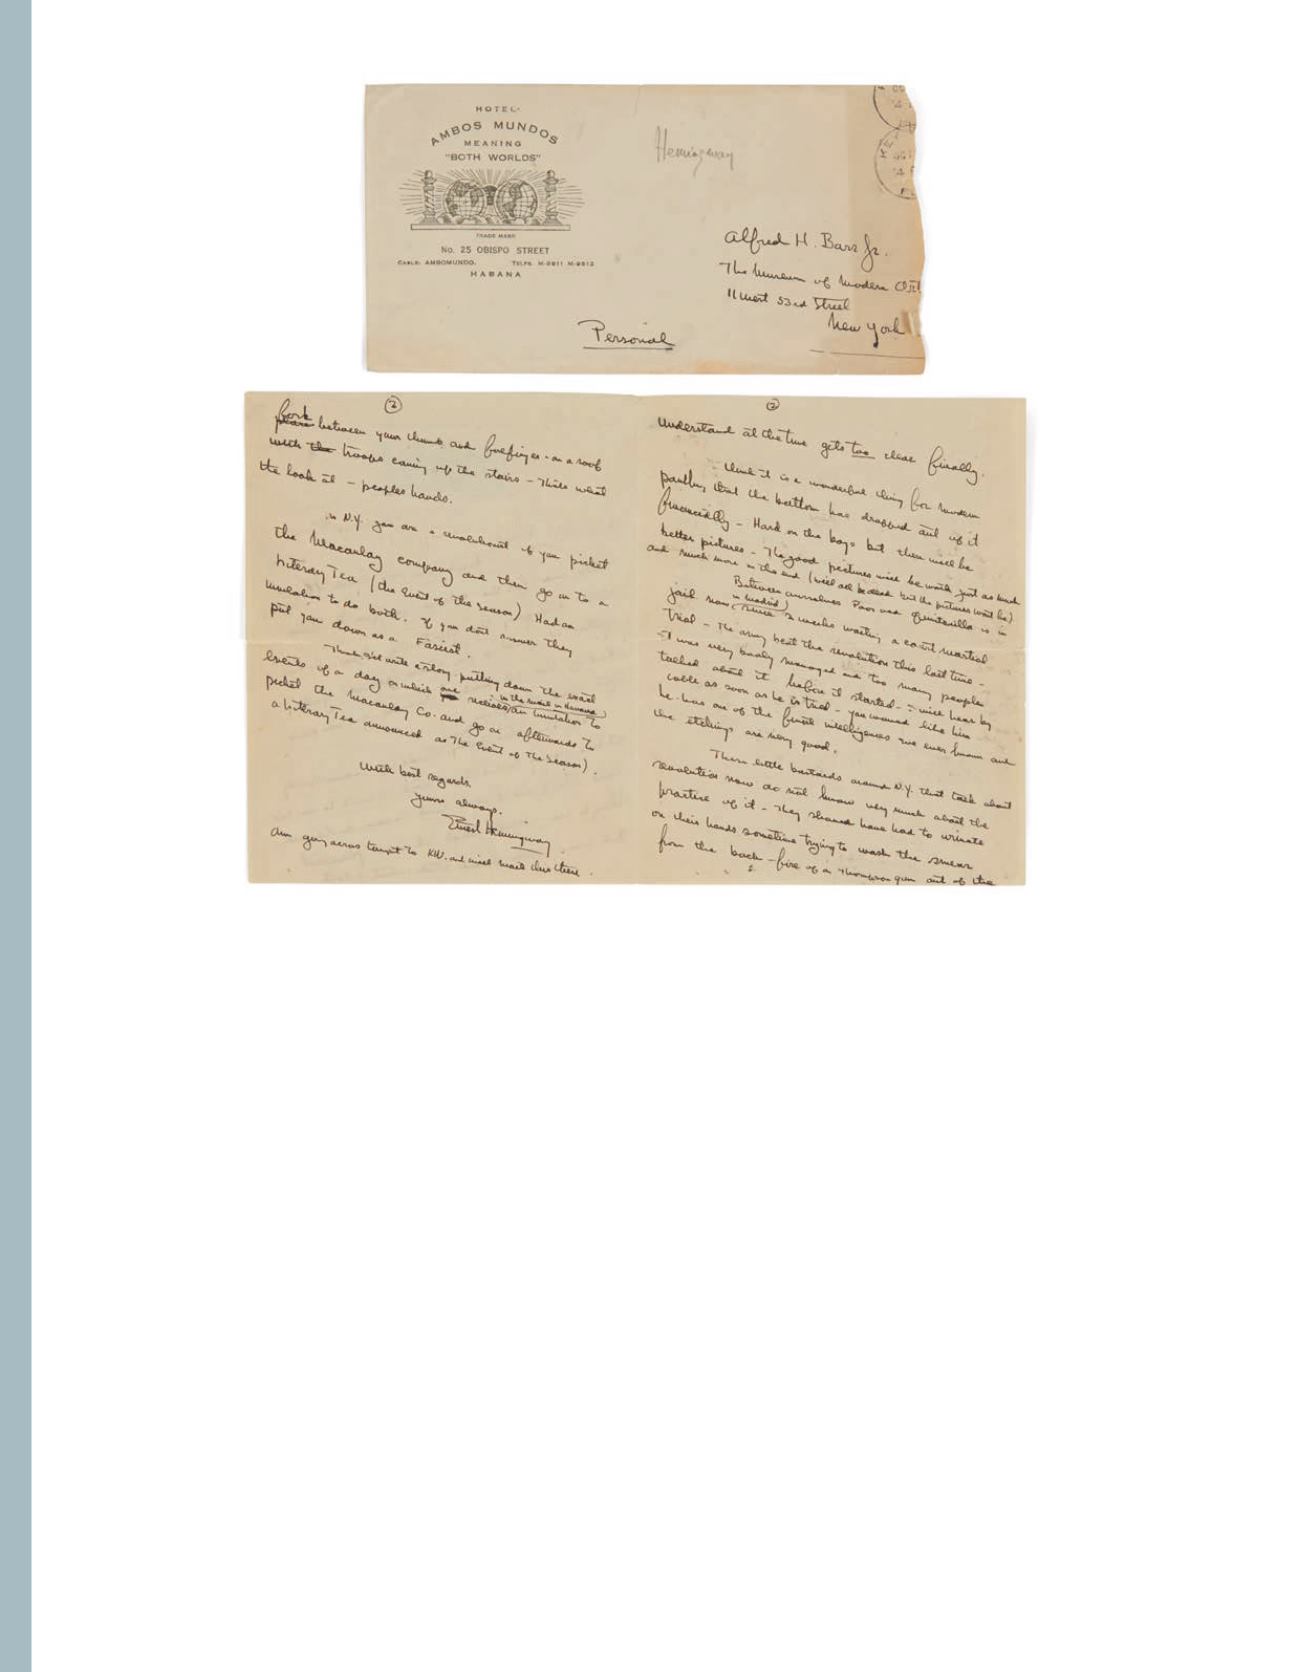 HOTEL
AMBOS MUNDOS
MEANING
"BOTH WORLDS"
TRADE MARK
No. 25 OBISPO STREET
CABLE: AMBOMUNDO. TELFS. M-9811 M-9812
HABANA
Hemingway
Alfred H. Barr Jr.
The Museum of Modern Art
11 West 53rd Street
New York
Personal
3
fork between your thumb and forefinger - on a roof
with troops coming up the stairs - That's what
the look at - peoples hands.
In N.Y. you are a revolutionist if you picket
the Macaulay company and then go in to a
Literary Tea (the Event of the Season) Had an
invitation to do both. If you dont answer they
put you down as a Fascist.
Think I'll write a story putting down the exact
events of a day on which one receives (in the mail in Havana) an invitation to
picket the Macaulay Co. and go on afterwards to
a Literary Tea announced as The Event of The Season).
With best regards.
Yours always.
Ernest Hemingway
Am going across tonight to KW. and will mail this there.
2
understand at the time gets too clear finally.
I think it is a wonderful thing for modern
painting that the bottom has dropped out of it
financially - Hard on the boys but there will be
better pictures - The good pictures will be worth just as much
and much more in the end (we'll all be dead but the pictures wont be)
Between ourselves Poor Luis Quintanilla is in
jail now (in Madrid) since 2 weeks waiting a court martial
trial - The army beat the revolution this last time -
It was very badly managed and too many people
talked about it before it started - I will hear by
cable as soon as he is tried - you would like him
he has one of the finest intelligences I've ever known and
the etchings are very good.
These little bastards around N.Y. that talk about
revolution now do not know very much about the
practice of it - They should have had to urinate
on their hands sometime trying to wash the smear
from the back-fire of a Thompson gun out of the